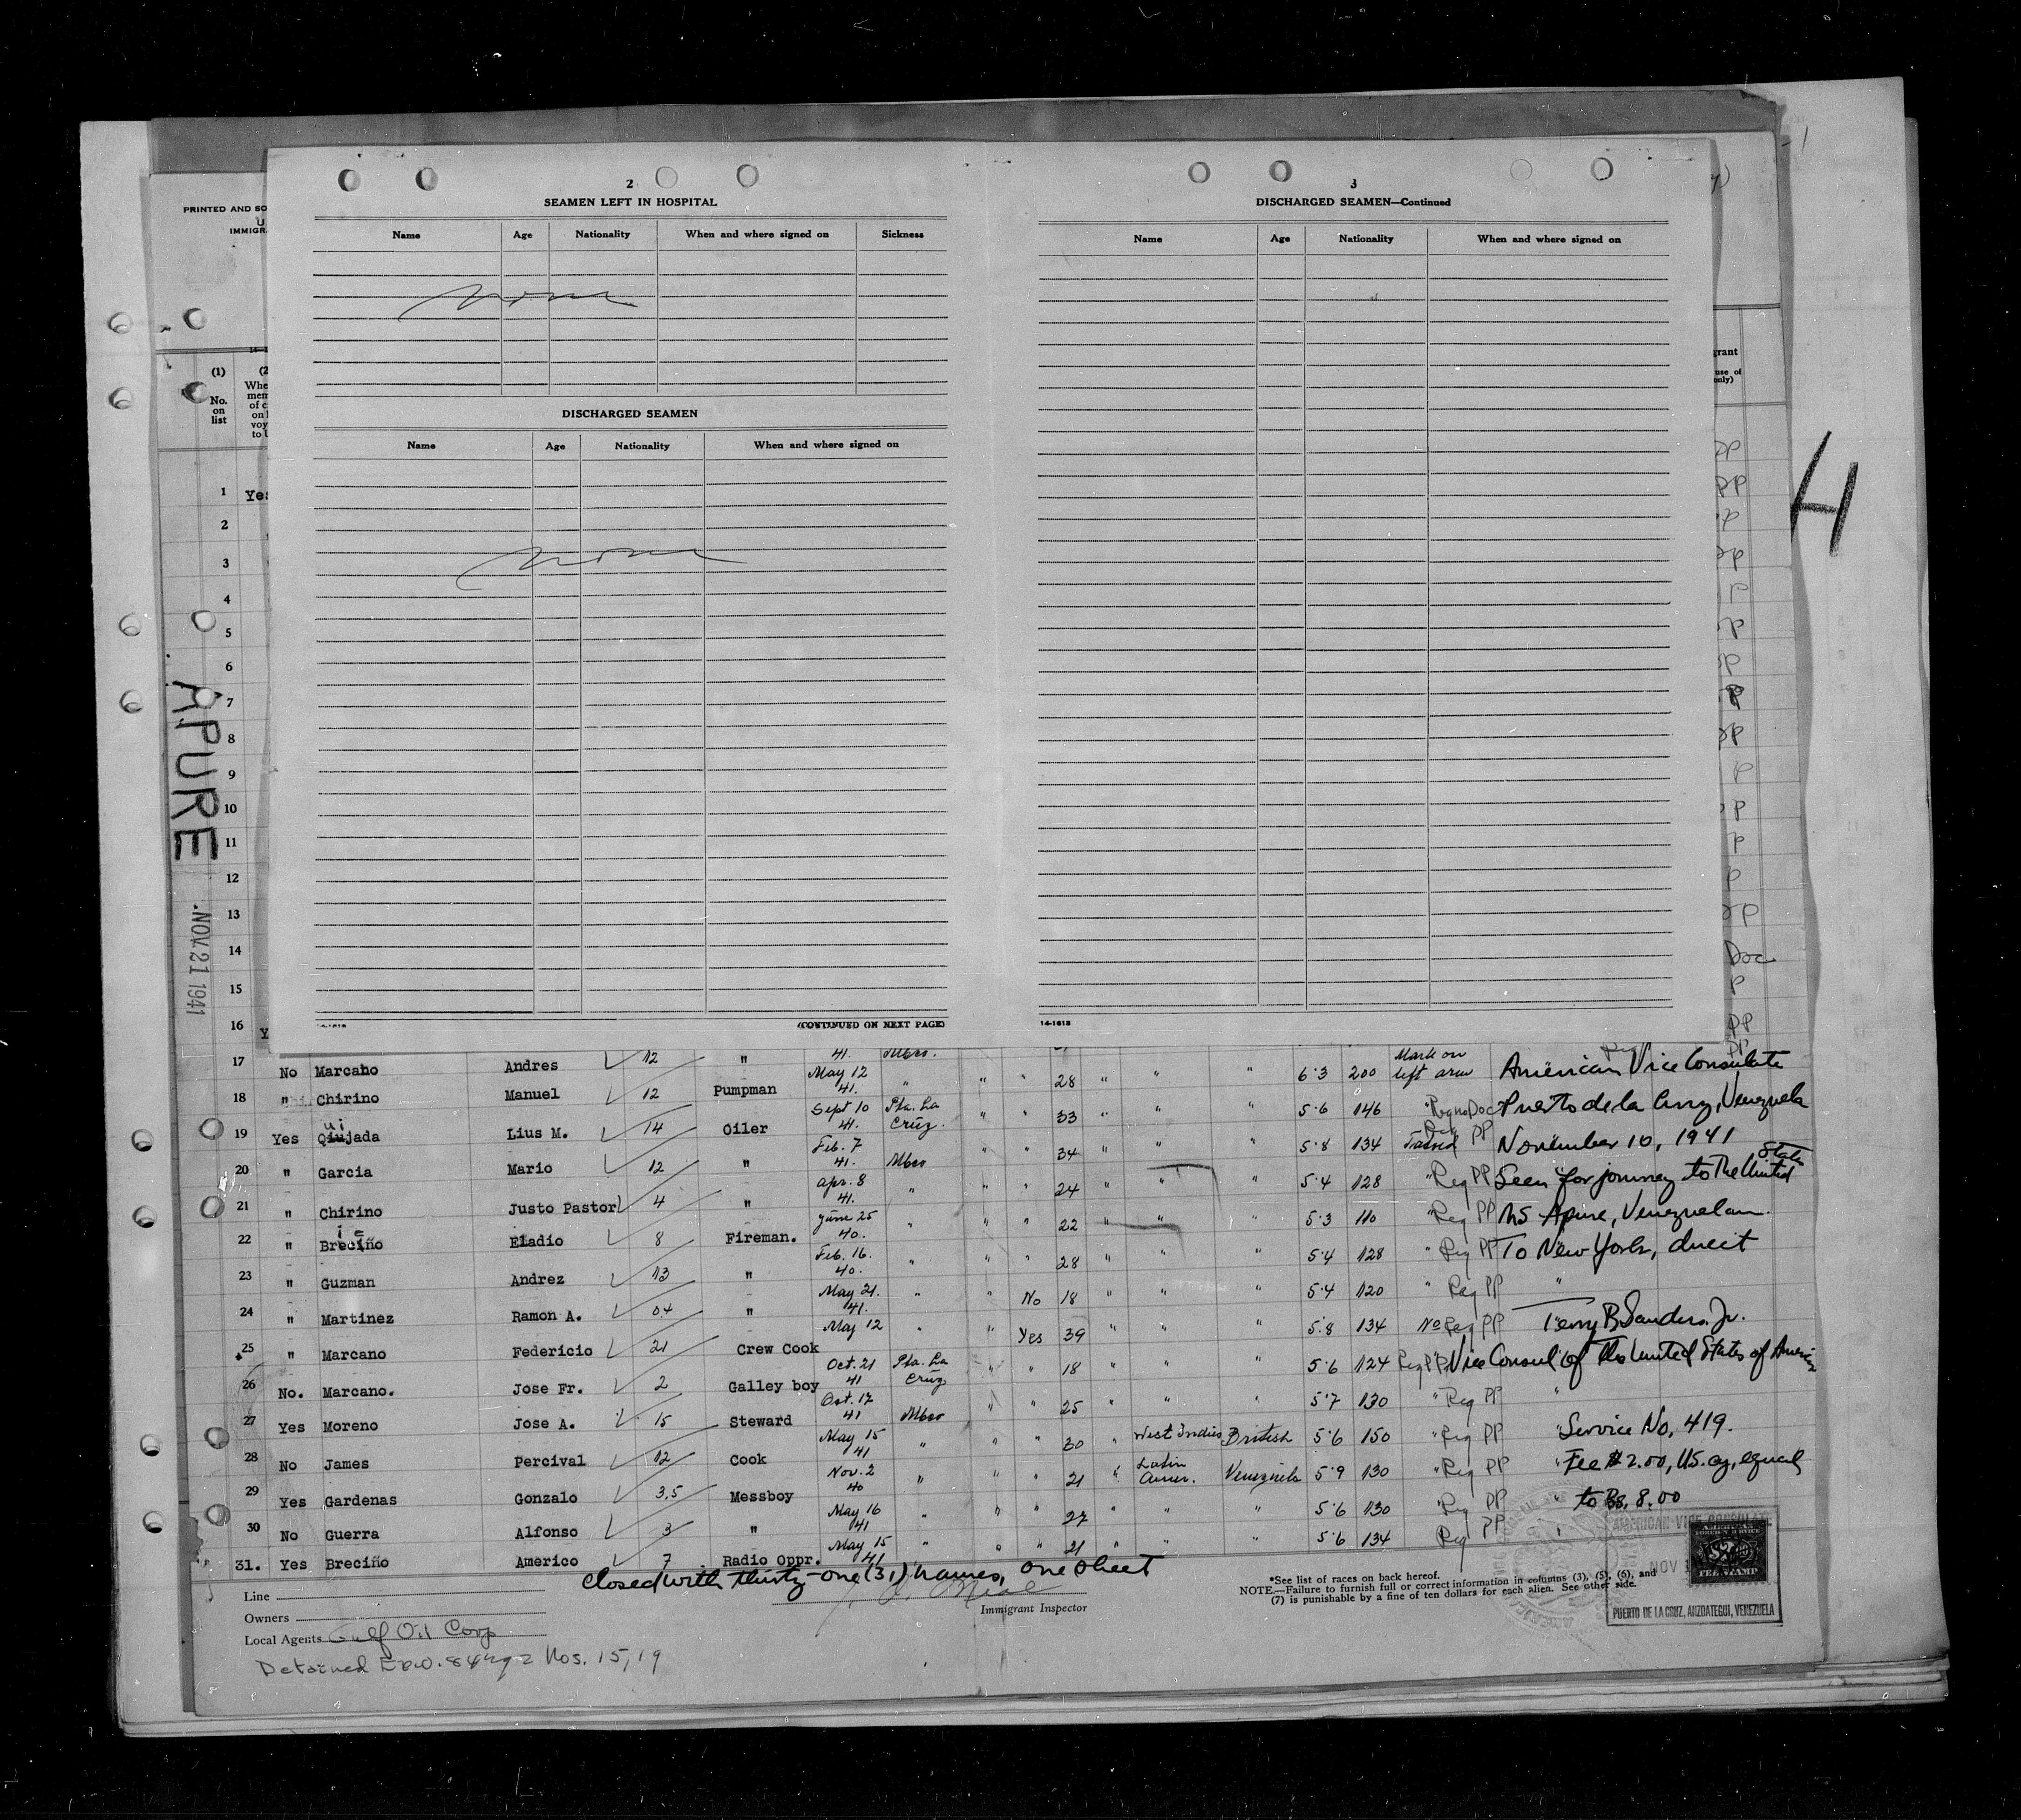 2
SEAMEN LEFT IN HOSPITAL
Name Age Nationality When and where signed on Sickness
none
DISCHARGED SEAMEN
Name Age Nationality When and where signed on
none
(CONTINUED ON NEXT PAGE)
3
DISCHARGED SEAMEN—Continued
Name Age Nationality When and where signed on
14-1613
PRINTED AND SO
U
IMMIGR
(1)
No.
on
list
(2
Whe
mem
of c
on l
voy
to U
grant
use of
only)
4
APURE
NOV 21 1941
1 Yes
2
3
4
5
6
7
8
9
10
11
12
13
14
15
Doc
16 Y
17 No Marcano Andres 12 " 41. Mbro. 28 " " " 6·3 200 Mark on left arm American Vice Consulate
18 " Chirino Manuel 12 Pumpman May 12 41. " " " 33 " " " 5·6 146 " Reg no Doc Puerto de la Cruz, Venezuela
19 Yes Quijada Lius M. 14 Oiler Sept 10 41. Pta. La Cruz. " " 34 " " " 5·8 134 Tattood Reg PP November 10, 1941
20 " Garcia Mario 12 " Feb. 7 41. Mbro " " 24 " " " 5·4 128 " Reg PP Seen for journey to the United States
21 " Chirino Justo Pastor 4 " Apr. 8 41. " " " 22 " " " 5·3 110 " Reg PP MS Apure, Venezuelan.
22 " Breciño Eladio 8 Fireman. June 25 40. " " " 28 " " " 5·4 128 " Reg PP To New York, direct
23 " Guzman Andrez 13 " Feb. 16. 40. " " No 18 " " " 5·4 120 " Reg PP "
24 " Martinez Ramon A. 04 " May 21. 41. " " Yes 39 " " " 5·8 134 No Reg PP Terry B. Sanders, Jr.
25 " Marcano Federicio 21 Crew Cook May 12 " " 18 " " " 5·6 124 Reg PP Vice Consul of the United States of America
26 No. Marcano. Jose Fr. 2 Galley boy Oct. 21 41 Pta. La Cruz " " 25 " " " 5·7 130 " Reg PP "
27 Yes Moreno Jose A. 15 Steward Oct. 17 41 Mbro " " 30 " West Indies British 5·6 150 " Reg PP " Service No. 419.
28 No James Percival 12 Cook May 15 41 " " " 21 " Latin Amer. Venezuela 5·9 130 " Reg PP " Fee $2.00, US. cy, equal
29 Yes Gardenas Gonzalo 3.5 Messboy Nov. 2 40 " " " 27 " " " 5·6 130 " Reg PP " to Bs. 8.00
30 No Guerra Alfonso 3 " May 16 41 " " " 21 " " " 5·6 134 Reg PP "
31. Yes Breciño Americo 7 Radio Oppr. May 15 41
closed with thirty-one (31) names, one sheet
Immigrant Inspector
Line
Owners
Local Agents Gulf Oil Corp
Detained Nos. 15, 19
*See list of races on back hereof.
NOTE.—Failure to furnish full or correct information in columns (3), (5), (6), and
(7) is punishable by a fine of ten dollars for each alien. See other side.
AMERICAN VICE CONSULATE
NOV
AMERICAN
FOREIGN SERVICE
FEE STAMP
PUERTO DE LA CRUZ, ANZOATEGUI, VENEZUELA